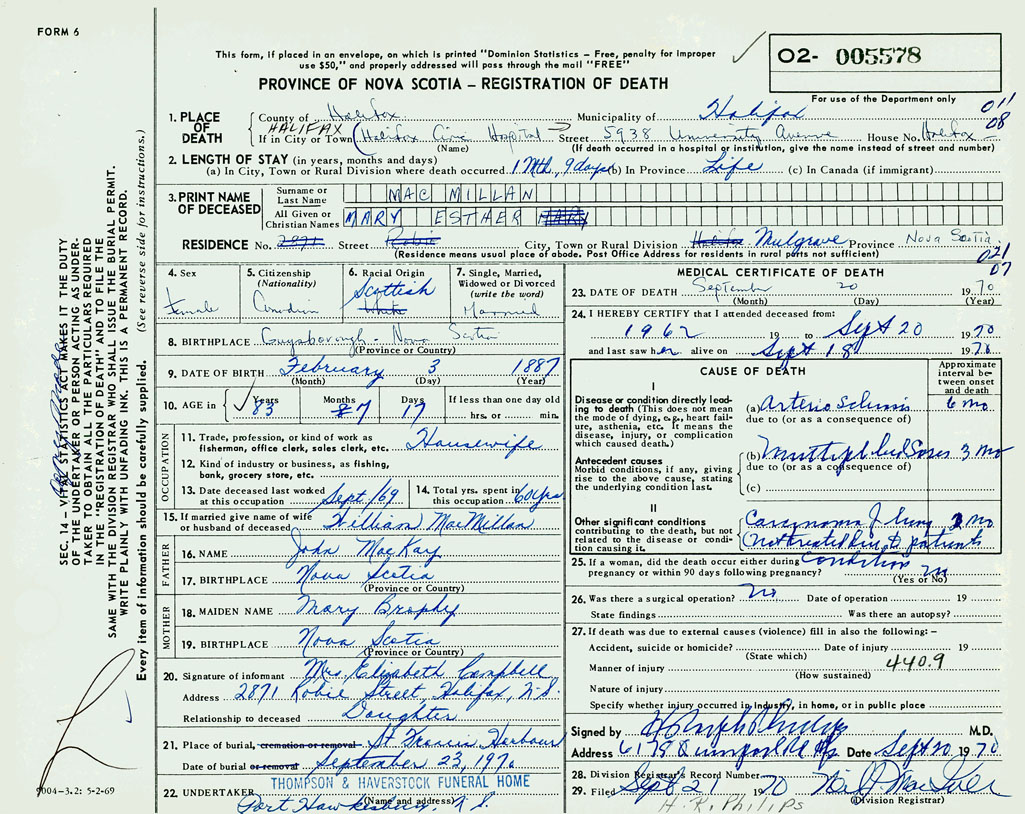 FORM 6
This form, if placed in an envelope, on which is printed "Dominion Statistics – Free, penalty for improper
use $50," and properly addressed will pass through the mail "FREE"
02- 005578
PROVINCE OF NOVA SCOTIA – REGISTRATION OF DEATH
For use of the Department only
1. PLACE OF DEATH
County of Halifax Municipality of Halifax 011
HALIFAX 08
If in City or Town (Halifax Civic Hospital) Street 5938 University Avenue House No. Halifax
(Name) (If death occurred in a hospital or institution, give the name instead of street and number)
2. LENGTH OF STAY (in years, months and days)
(a) In City, Town or Rural Division where death occurred 1 Mth, 9 days (b) In Province Life (c) In Canada (if immigrant)
3. PRINT NAME OF DECEASED
Surname or Last Name MAC MILLAN
All Given or Christian Names MARY ESTHER MARY
RESIDENCE No. 2871 Street Robie City, Town or Rural Division Halifax Mulgrave Province Nova Scotia
(Residence means usual place of abode. Post Office Address for residents in rural parts not sufficient)
021
07
4. Sex
Female
5. Citizenship
(Nationality)
Canadian
6. Racial Origin
Scottish
White
7. Single, Married, Widowed or Divorced
(write the word)
Married
8. BIRTHPLACE Guysborough - Nova Scotia
(Province or Country)
9. DATE OF BIRTH February 3 1887
(Month) (Day) (Year)
10. AGE in Years Months Days If less than one day old
83 8 7 17 hrs. or min.
OCCUPATION
11. Trade, profession, or kind of work as
fisherman, office clerk, sales clerk, etc. Housewife
12. Kind of industry or business, as fishing,
bank, grocery store, etc.
13. Date deceased last worked
at this occupation Sept./69
14. Total yrs. spent in
this occupation 60 yrs
15. If married give name of wife
or husband of deceased William MacMillan
FATHER
16. NAME John MacKay
17. BIRTHPLACE Nova Scotia
(Province or Country)
MOTHER
18. MAIDEN NAME Mary Brophy
19. BIRTHPLACE Nova Scotia
(Province or Country)
20. Signature of informant Mrs. Elizabeth Campbell
Address 2871 Robie Street, Halifax, N.S.
Relationship to deceased Daughter
21. Place of burial, cremation or removal St Francis Harbour
Date of burial or removal September 23, 1970
22. UNDERTAKER THOMPSON & HAVERSTOCK FUNERAL HOME
(Name and address)
Port Hawkesbury N.S.
MEDICAL CERTIFICATE OF DEATH
23. DATE OF DEATH September 20 1970
(Month) (Day) (Year)
24. I HEREBY CERTIFY that I attended deceased from:
1962 19 to Sept 20 1970
and last saw her alive on Sept 18 1970
CAUSE OF DEATH
Approximate interval between onset and death
I
Disease or condition directly leading to death (This does not mean the mode of dying, e.g., heart failure, asthenia, etc. It means the disease, injury, or complication which caused death.)
(a) Arterio Sclerosis 6 mo
due to (or as a consequence of)
Antecedent causes
Morbid conditions, if any, giving rise to the above cause, stating the underlying condition last.
(b) Multiple bed Sores 3 mo
due to (or as a consequence of)
(c)
II
Other significant conditions contributing to the death, but not related to the disease or condition causing it.
Carcinoma of lung 2 mo
Not treated due to patients
Condition
25. If a woman, did the death occur either during
pregnancy or within 90 days following pregnancy? No
(Yes or No)
26. Was there a surgical operation? No Date of operation 19
State findings Was there an autopsy?
27. If death was due to external causes (violence) fill in also the following: –
Accident, suicide or homicide? Date of injury 19
(State which)
440.9
Manner of injury
(How sustained)
Nature of injury
Specify whether injury occurred in industry, in home, or in public place
Signed by M.D.
Address 6178 Date Sept 20 1970
28. Division Registrar's Record Number
29. Filed Sept 21 1970
(Division Registrar)
H. R. Philips
SEC. 14 – VITAL STATISTICS ACT MAKES IT THE DUTY
OF THE UNDERTAKER OR PERSON ACTING AS UNDER-
TAKER TO OBTAIN ALL THE PARTICULARS REQUIRED
IN THIS "REGISTRATION OF DEATH" AND TO FILE THE
SAME WITH THE DIVISION REGISTRAR WHO SHALL ISSUE THE BURIAL PERMIT.
WRITE PLAINLY WITH UNFADING INK. THIS IS A PERMANENT RECORD.
Every item of information should be carefully supplied. (See reverse side for instructions.)
9004-3.2: 5-2-69